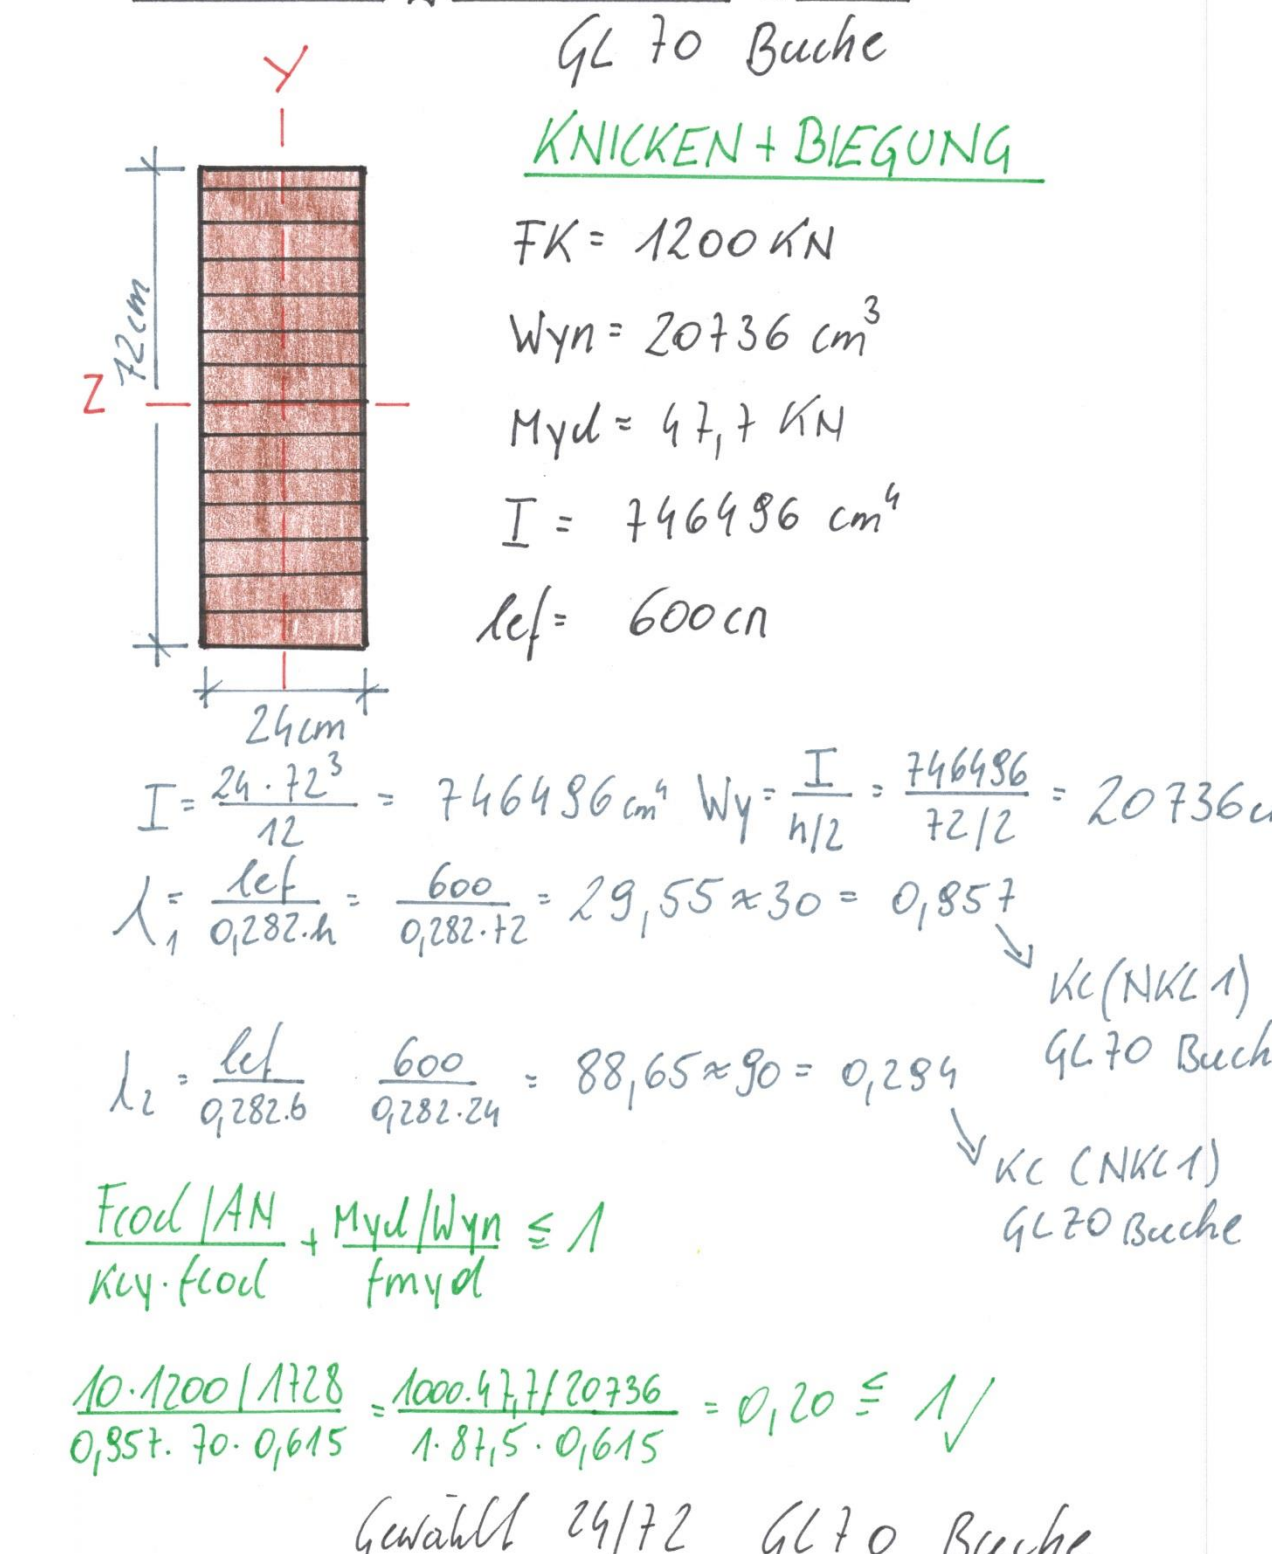 GL 70 Buche
Y
KNICKEN + BIEGUNG
FK = 1200 KN
Wyn = 20736 cm³
72cm
Z
Myd = 47,7 KN
I = 746496 cm⁴
lef = 600cm
24cm
I = 24 · 72³ / 12 = 746496 cm⁴ Wy = I / h/2 = 746496 / 72/2 = 20736c
λ₁ = lef / 0,282·h = 600 / 0,282·72 = 29,55 ≈ 30 = 0,957
KC (NKL 1)
GL70 Buch
λ₂ = lef / 0,282·b 600 / 0,282·24 = 88,65 ≈ 90 = 0,294
KC (NKL 1)
GL70 Buche
Fcod / AN / Kcy · fcod + Myd / Wyn / fmyd ≤ 1
10·1200 / 1728 / 0,957 · 70 · 0,615 = 1000·47,7 / 20736 / 1·87,5 · 0,615 = 0,20 ≤ 1 ✓
Gewählt 24/72 GL70 Buche